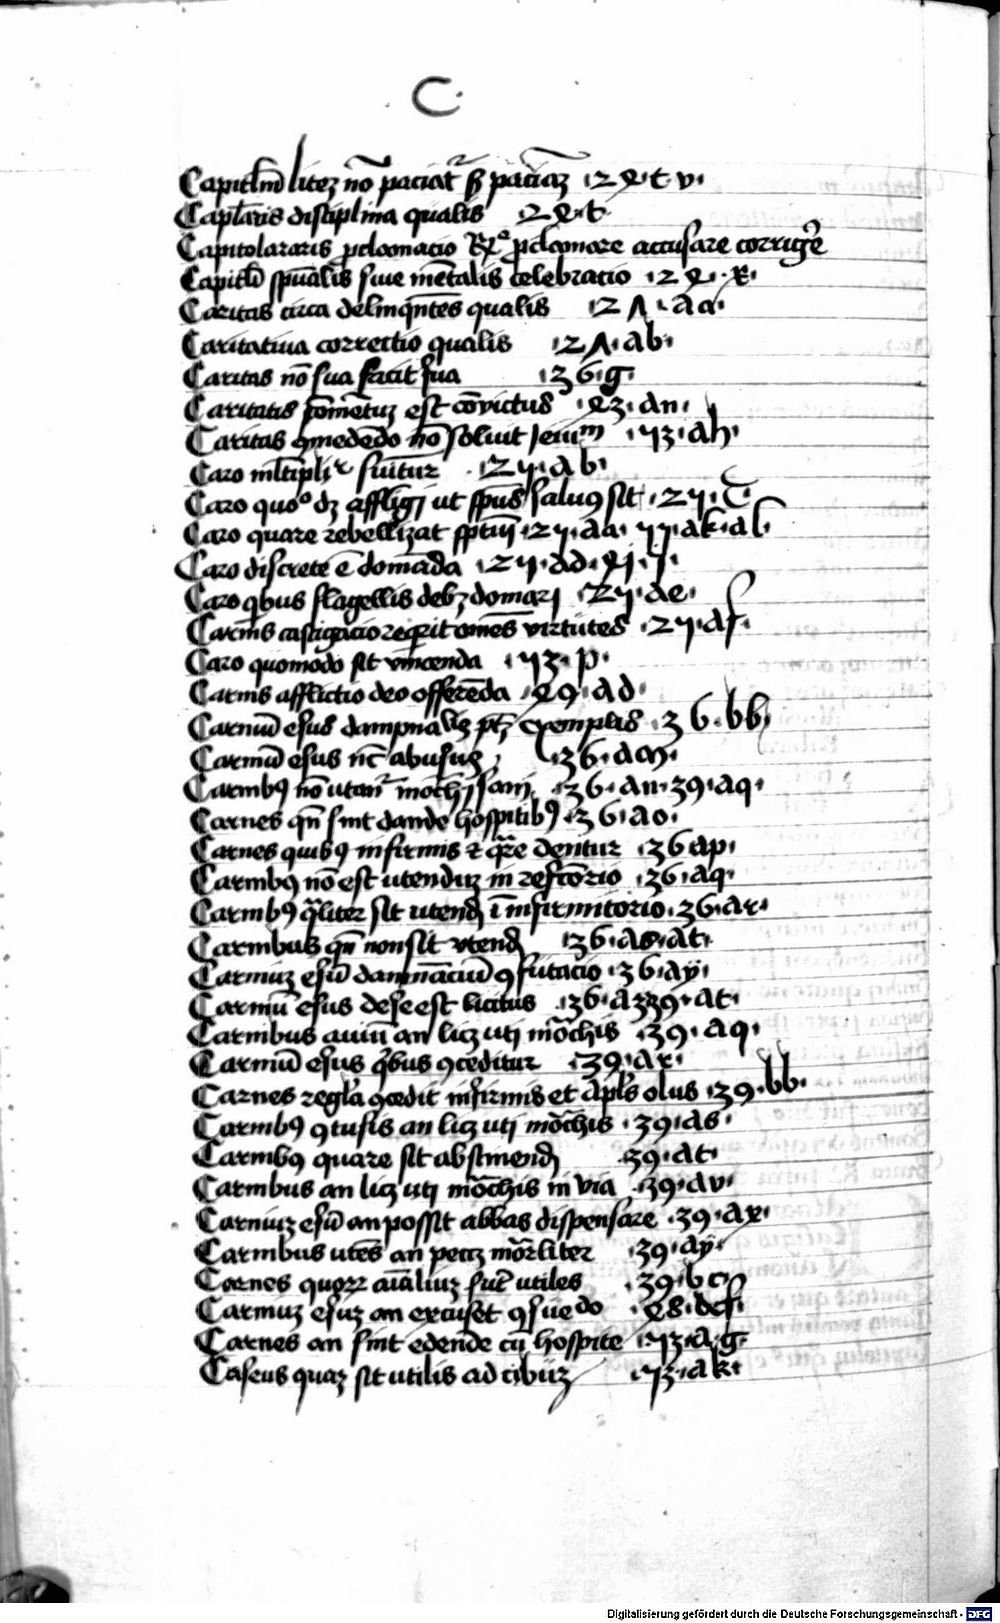 C.
Capitlm̄ litez nō paciat᷑ ꝑ paciaz ·2ꝝ·t·v·
Caplaris disciplina qualis ·2ꝝ·t·
Capitolararis ꝓclamacio Rꝫᵃ ꝓclamare accusare corrigẽ
Capitlī spūalis siue mētalis celebracio ·2ꝝ·x·
Caritas circa delinqn̄tes qualis ·2Λ·aa·
Caritatiua correctio qualis ·2Λ·ab·
Caritas nō sua facit sua ·36·g·
Caritatis fomētuz est cōuictus ·ꝝ3·an·
Caritas ꝯmedēdo nō soluit Ieiuᵐ ·73·ah·
Caro mltiplir seruitur ·27·ab·
Caro quoº dꝫ affligi ut spūs saluꝰ sit ·27·c·
Caro quare rebellizat spūi ·27·aa·77·ak·al·
Caro discrete ē domāda ·27·ad·
Caro qibus flagellis debꝫ domari ·27·ae·
Carnis castigacio reqirit omēs virtutes ·27·af·
Caro quomodo sit vincenda ·73·p·
Carnis afflictio deo offerēda ·ꝝ9·ad·
Carniū esus dampnalis ptꝫ exemplis ·36·bb·
Carniū esus nc̄ abusus ·36·am·
Carnibꝰ nō utant᷑ mōchi sani ·36·an·39·aq·
Carnes qn̄ sint dande hospitibꝰ ·36·ao·
Carnes quibꝰ infirmis ⁊ qr̄e dentur ·36·ap·
Carnibꝰ nō est utenduz in refectōrio ·36·aq·
Carnibꝰ qliter sit utend ī infirmitorio ·36·ar·
Carnibus qn̄ non sit vtend ·36·as·at·
Carniuz esū damnāciū ꝯfutacio ·36·ay·
Carniū esus de se est licitus ·36·az·39·at·
Carnibus auiū an licꝫ uti mōchis ·39·aq·
Carniū esus qibus ꝯceditur ·39·ar·
Carnes regla ꝯcedit infirmis et apls olus ·39·bb·
Carnibꝰ ꝯtusis an licꝫ uti mōchis ·39·as·
Carnibꝰ quare sit abstinend ·39·at·
Carnibus an licꝫ uti mōchis in via ·39·av·
Carniuz esū an possit abbas dispensare ·39·ax·
Carnibus utēs an peccꝫ mōrliter ·39·ay·
Carnes quorz aīaliuz sūt utiles ·39·bc·
Carniuz esuz an excuset ꝯsuedo ·ꝝ8·def·
Carnes an sint edende cū hospite ·73·a·g·
Caseus quaz sit utilis ad cibuz ·73·ak·
Digitalisierung gefördert durch die Deutsche Forschungsgemeinschaft - DFG